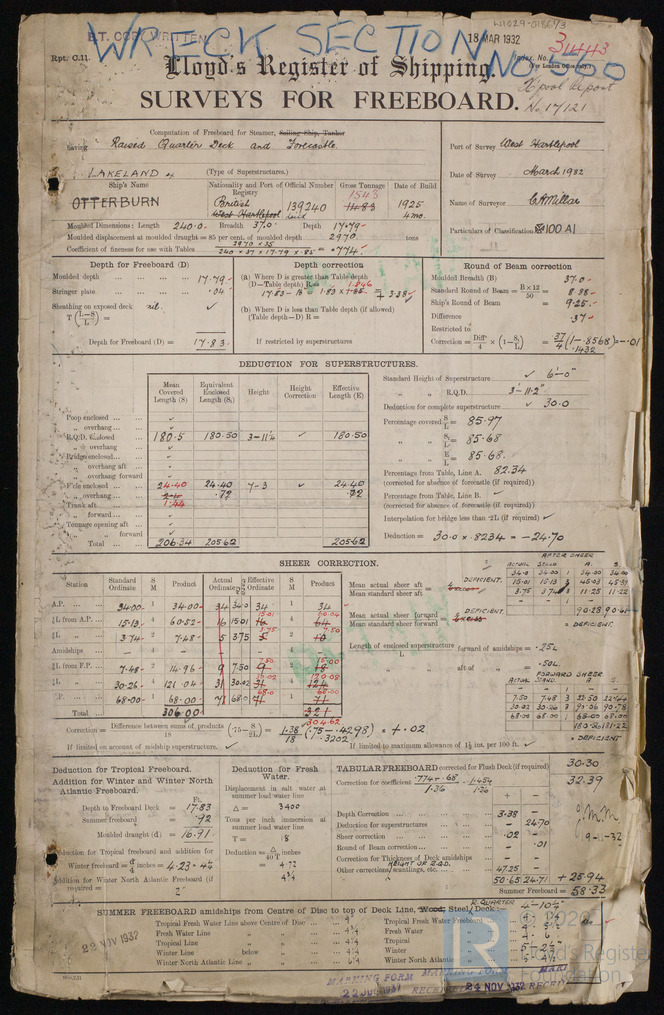 W1029-0186 1/3
B.T. COPY WRITTEN
WRECK SECTION
No 560
18 MAR 1932
Rpt. C.11.
Index. No.
(For London Office only.)
Lloyd's Register of Shipping.
SURVEYS FOR FREEBOARD.
H'pool Report
No. 17121
Computation of Freeboard for Steamer, Sailing Ship, Tanker
having Raised Quarter Deck and Forecastle
(Type of Superstructures).
LAKELAND ex
Ship's Name
OTTERBURN
Nationality and Port of Registry
British
West Hartlepool
Official Number
139240
Gross Tonnage
1543
1483
Date of Build
1925
4 mo.
Port of Survey West Hartlepool
Date of Survey March 1932
Name of Surveyor
Particulars of Classification 100 A1
Moulded Dimensions: Length 240.0 Breadth 37.0 Depth 17.79
Moulded displacement at moulded draught = 85 per cent. of moulded depth 2970 tons
Coefficient of fineness for use with Tables 2970 × 35 / 240 × 37 × 17.79 × .85 = .774
Depth for Freeboard (D)
Moulded depth 17.79
Stringer plate .04
Sheathing on exposed deck nil.
T (L−S / L) =
Depth for Freeboard (D) = 17.83
Depth correction
(a) Where D is greater than Table depth
(D−Table depth) R = 1.846
17.83 − 16 1.83 × 1.85 = + 3.38
(b) Where D is less than Table depth (if allowed)
(Table depth−D) R =
If restricted by superstructures
Round of Beam correction
Moulded Breadth (B) 37.0
Standard Round of Beam = B×12 / 50 = 8.88
Ship's Round of Beam = 9.25
Difference .37
Restricted to
Correction = Diff / 4 × (1 − S1 / L) = .37 / 4 (1 − .8568) = −.01
.1432
DEDUCTION FOR SUPERSTRUCTURES.
Mean Covered Length (S) Equivalent Enclosed Length (S1) Height Height Correction Effective Length (E)
Poop enclosed
„ overhang
R.Q.D. enclosed 180.5 180.50 3-11¼ 180.50
„ overhang
Bridge enclosed
„ overhang aft
„ overhang forward
F'cle enclosed 24.40 24.40 7-3 24.40
„ overhang 1.44 .72 .72
Trunk aft
„ forward
Tonnage opening aft
„ „ forward
Total 206.34 205.62 205.62
Standard Height of Superstructure 6'-0"
„ „ R.Q.D. 3'-11.2"
Deduction for complete superstructure 30.0
Percentage covered S / L = 85.97
„ „ S1 / L = 85.68
„ „ E / L = 85.68
Percentage from Table, Line A. 82.34
(corrected for absence of forecastle (if required))
Percentage from Table, Line B.
(corrected for absence of forecastle (if required))
Interpolation for bridge less than .2L (if required)
Deduction = 30.0 × .8234 = −24.70
SHEER CORRECTION.
Station Standard Ordinate S M Product Actual Ordinate Effective Ordinate S M Product
A.P. 34.00 1 34.00 34 34.0 34 1 34
⅙L from A.P. 15.13 4 60.52 16 15.01 15.01 4 60.04
⅓L „ 3.74 2 7.48 5 3.75 3.75 2 7.50
Amidships
⅓L from F.P. 7.48 2 14.96 9 7.50 7.50 2 15.00
⅙L „ 30.26 4 121.04 31 30.02 30.02 4 120.08
F.P. 68.00 1 68.00 71 68.0 68.0 1 68.00
Total 306.00 321 304.62
Mean actual sheer aft / Mean standard sheer aft = DEFICIENT.
Mean actual sheer forward / Mean standard sheer forward = DEFICIENT
Length of enclosed superstructure / L forward of amidships = .25L
„ „ aft of „ = .50L
AFTER SHEER
ACTUAL STAND. A. S.
34.0 34.00 1 34.00 34.00
15.01 15.13 3 45.03 45.39
3.75 3.74 3 11.25 11.22
90.28 90.61
= DEFICIENT.
FORWARD SHEER
ACTUAL STAND. A. S.
7.50 7.48 3 22.50 22.44
30.02 30.26 3 90.06 90.78
68.00 68.00 1 68.00 68.00
180.56 181.22
= DEFICIENT
Correction = Difference between sums of products / 18 (.75 − S / 2L) = 1.38 / 18 (.75 − .4298) = + .02
.3202
If limited on account of midship superstructure.
If limited to maximum allowance of 1½ ins. per 100 ft.
Deduction for Tropical Freeboard.
Addition for Winter and Winter North Atlantic Freeboard.
Depth to Freeboard Deck = 17.83
Summer freeboard = .92
Moulded draught (d) = 16.91
Deduction for Tropical freeboard and addition for Winter freeboard = d / 4 inches = 4.23 = 4¼
Addition for Winter North Atlantic Freeboard (if required) = 2"
Deduction for Fresh Water.
Displacement in salt water at summer load water line
Δ = 3400
Tons per inch immersion at summer load water line
T = 18
Deduction = Δ / 40T inches
= 4.72
4¾
TABULAR FREEBOARD corrected for Flush Deck (if required) 30.30
Correction for coefficient .774 + .68 / 1.36 1.454 / 1.36 32.39
+ −
Depth Correction 3.38 −
Deduction for superstructures − 24.70
Sheer correction .02 −
Round of Beam correction − .01
Correction for Thickness of Deck amidships − −
HEIGHT OF R.Q.D.
Other corrections, scantlings, etc. 47.25 −
50.65 24.71 + 25.94
Summer Freeboard = 58.33
9-11-32
SUMMER FREEBOARD amidships from Centre of Disc to top of Deck Line, Wood, Steel, Deck:
R. QUARTER 4-10¼
Tropical Fresh Water Line above Centre of Disc 9"
Fresh Water Line „ „ 4¾
Tropical Line „ „ 4¼
Winter Line below „ 4¼
Winter North Atlantic Line „ „ 6¼
Tropical Fresh Water Freeboard
Fresh Water „
Tropical „
Winter „
Winter North Atlantic „
22 NOV 1932
MARKING FORM
24 NOV 1932
© 2020
Lloyd's Register
Foundation
LR